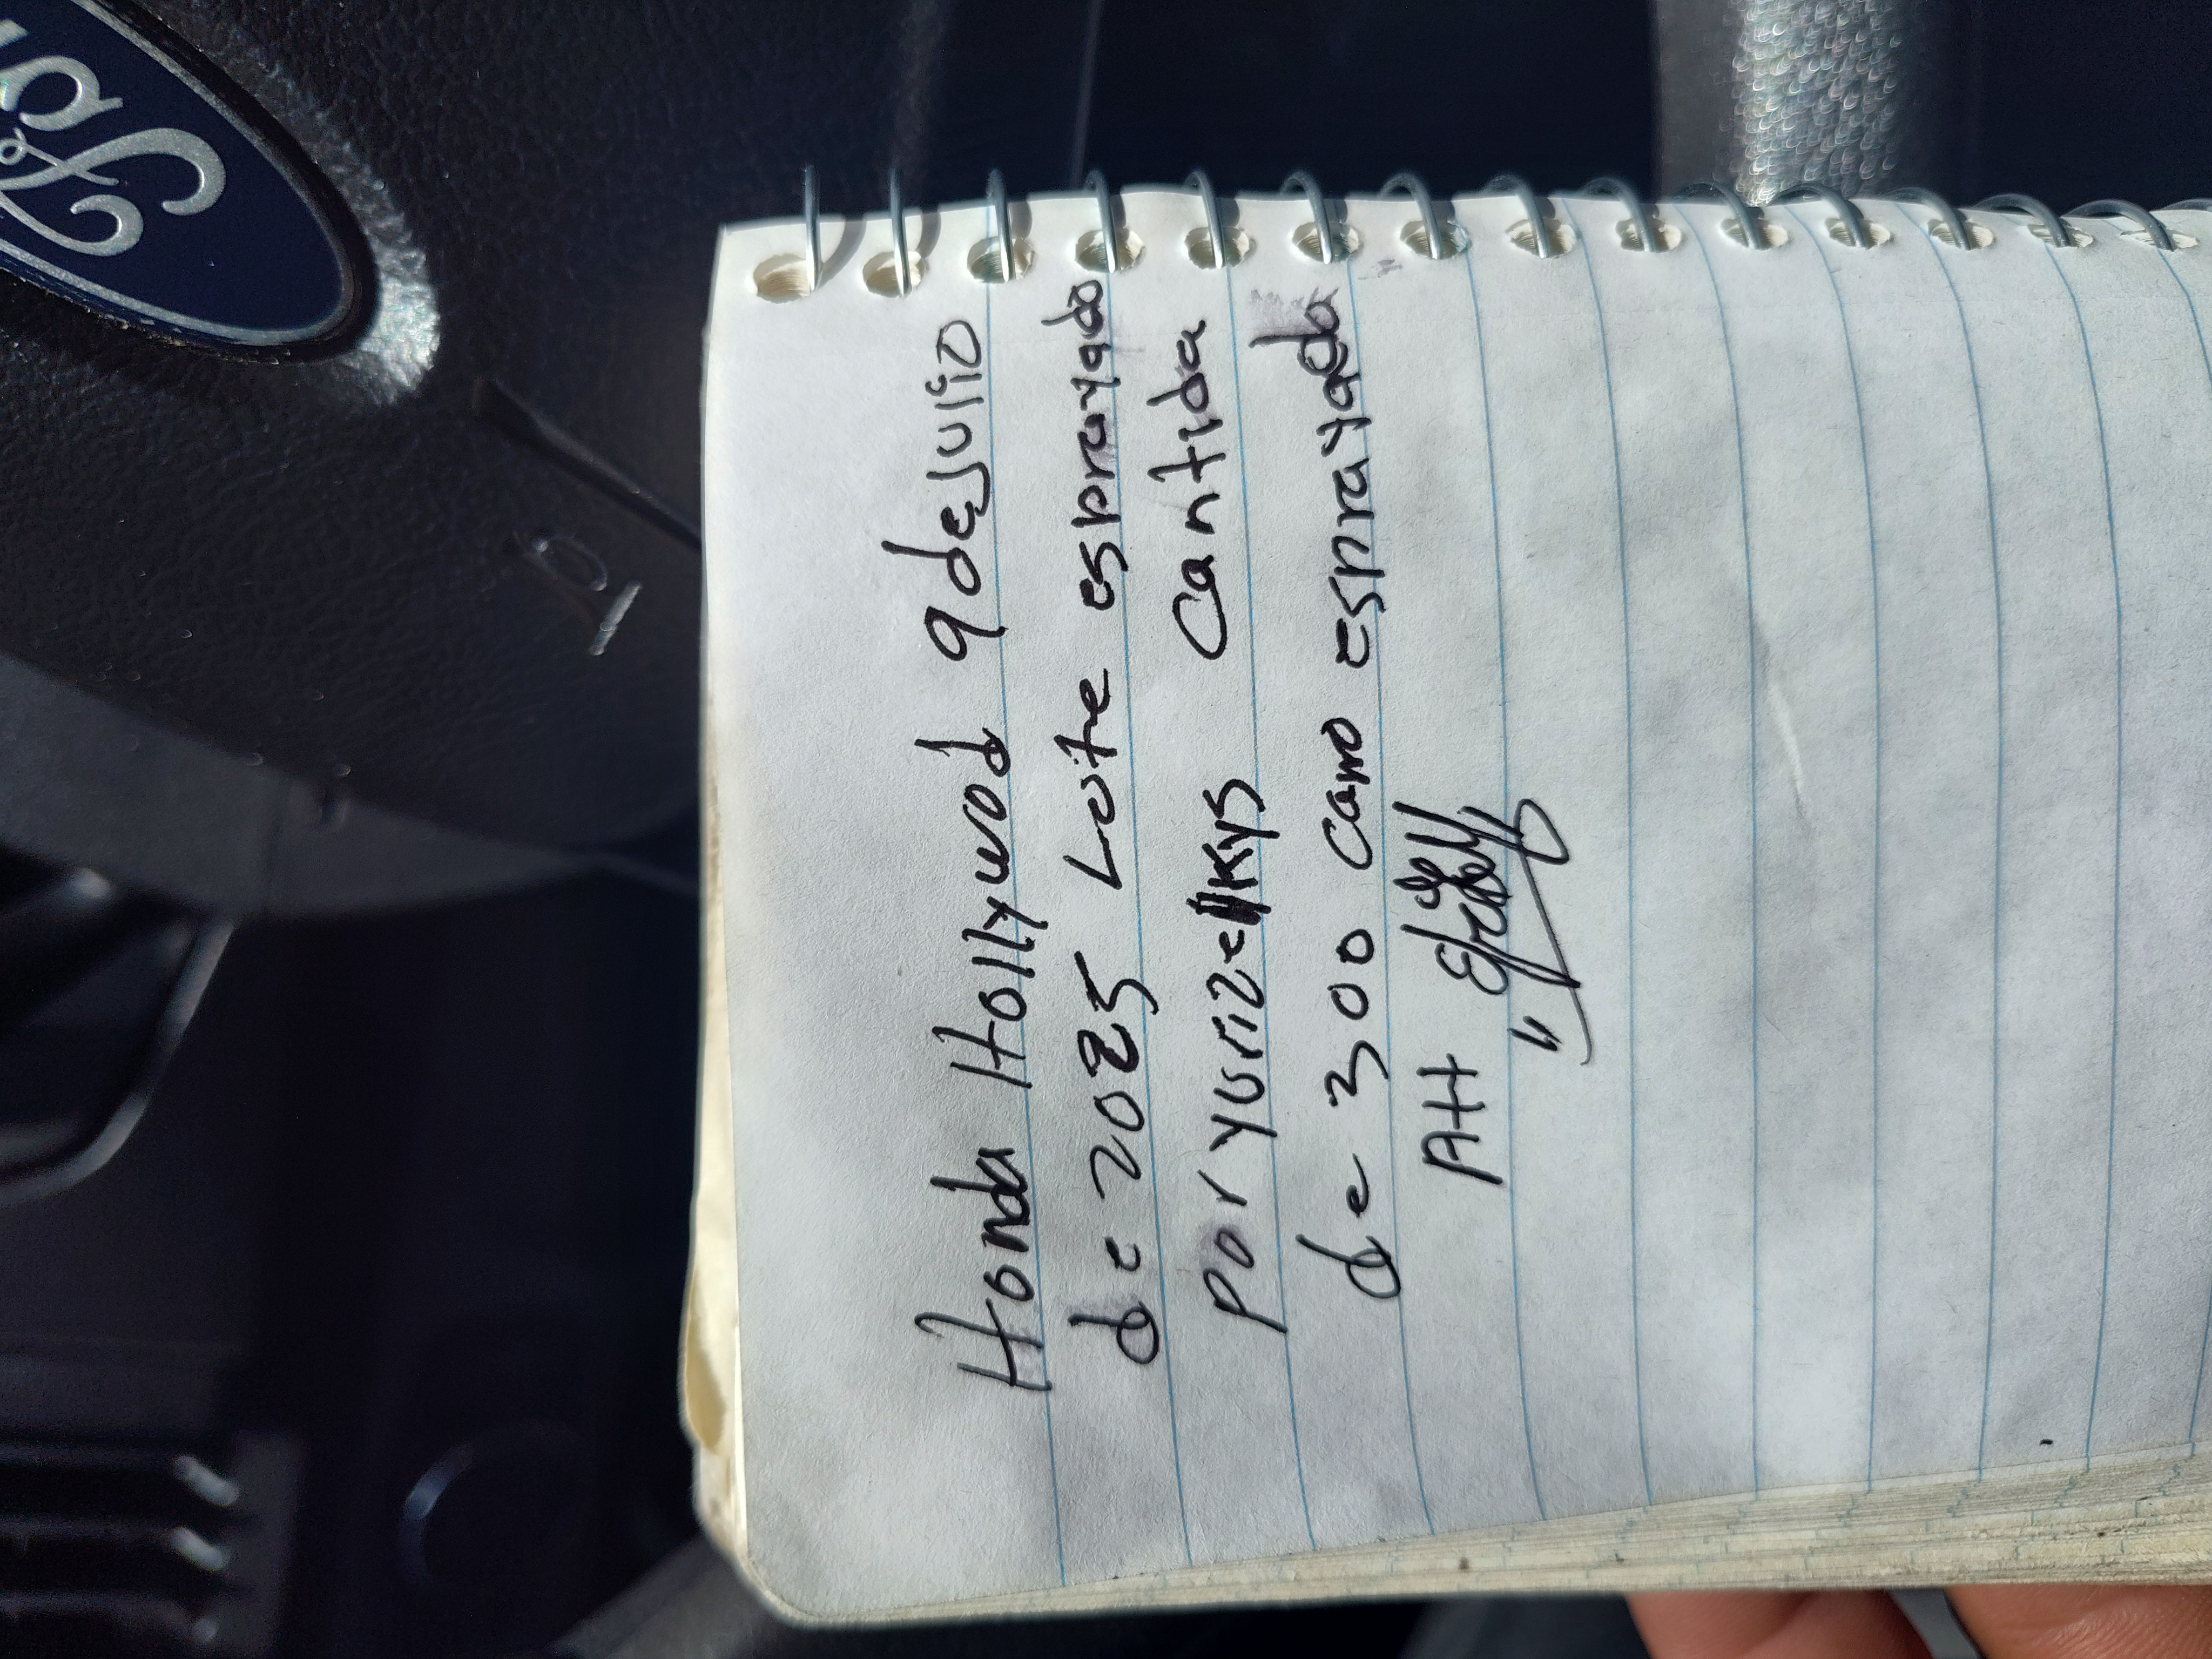 Ford
Honda Hollywod 9 de Julio
de 2025 Lote esprayado
Por Yurizelkys Cantida
de 300 Camo esprayado
AH